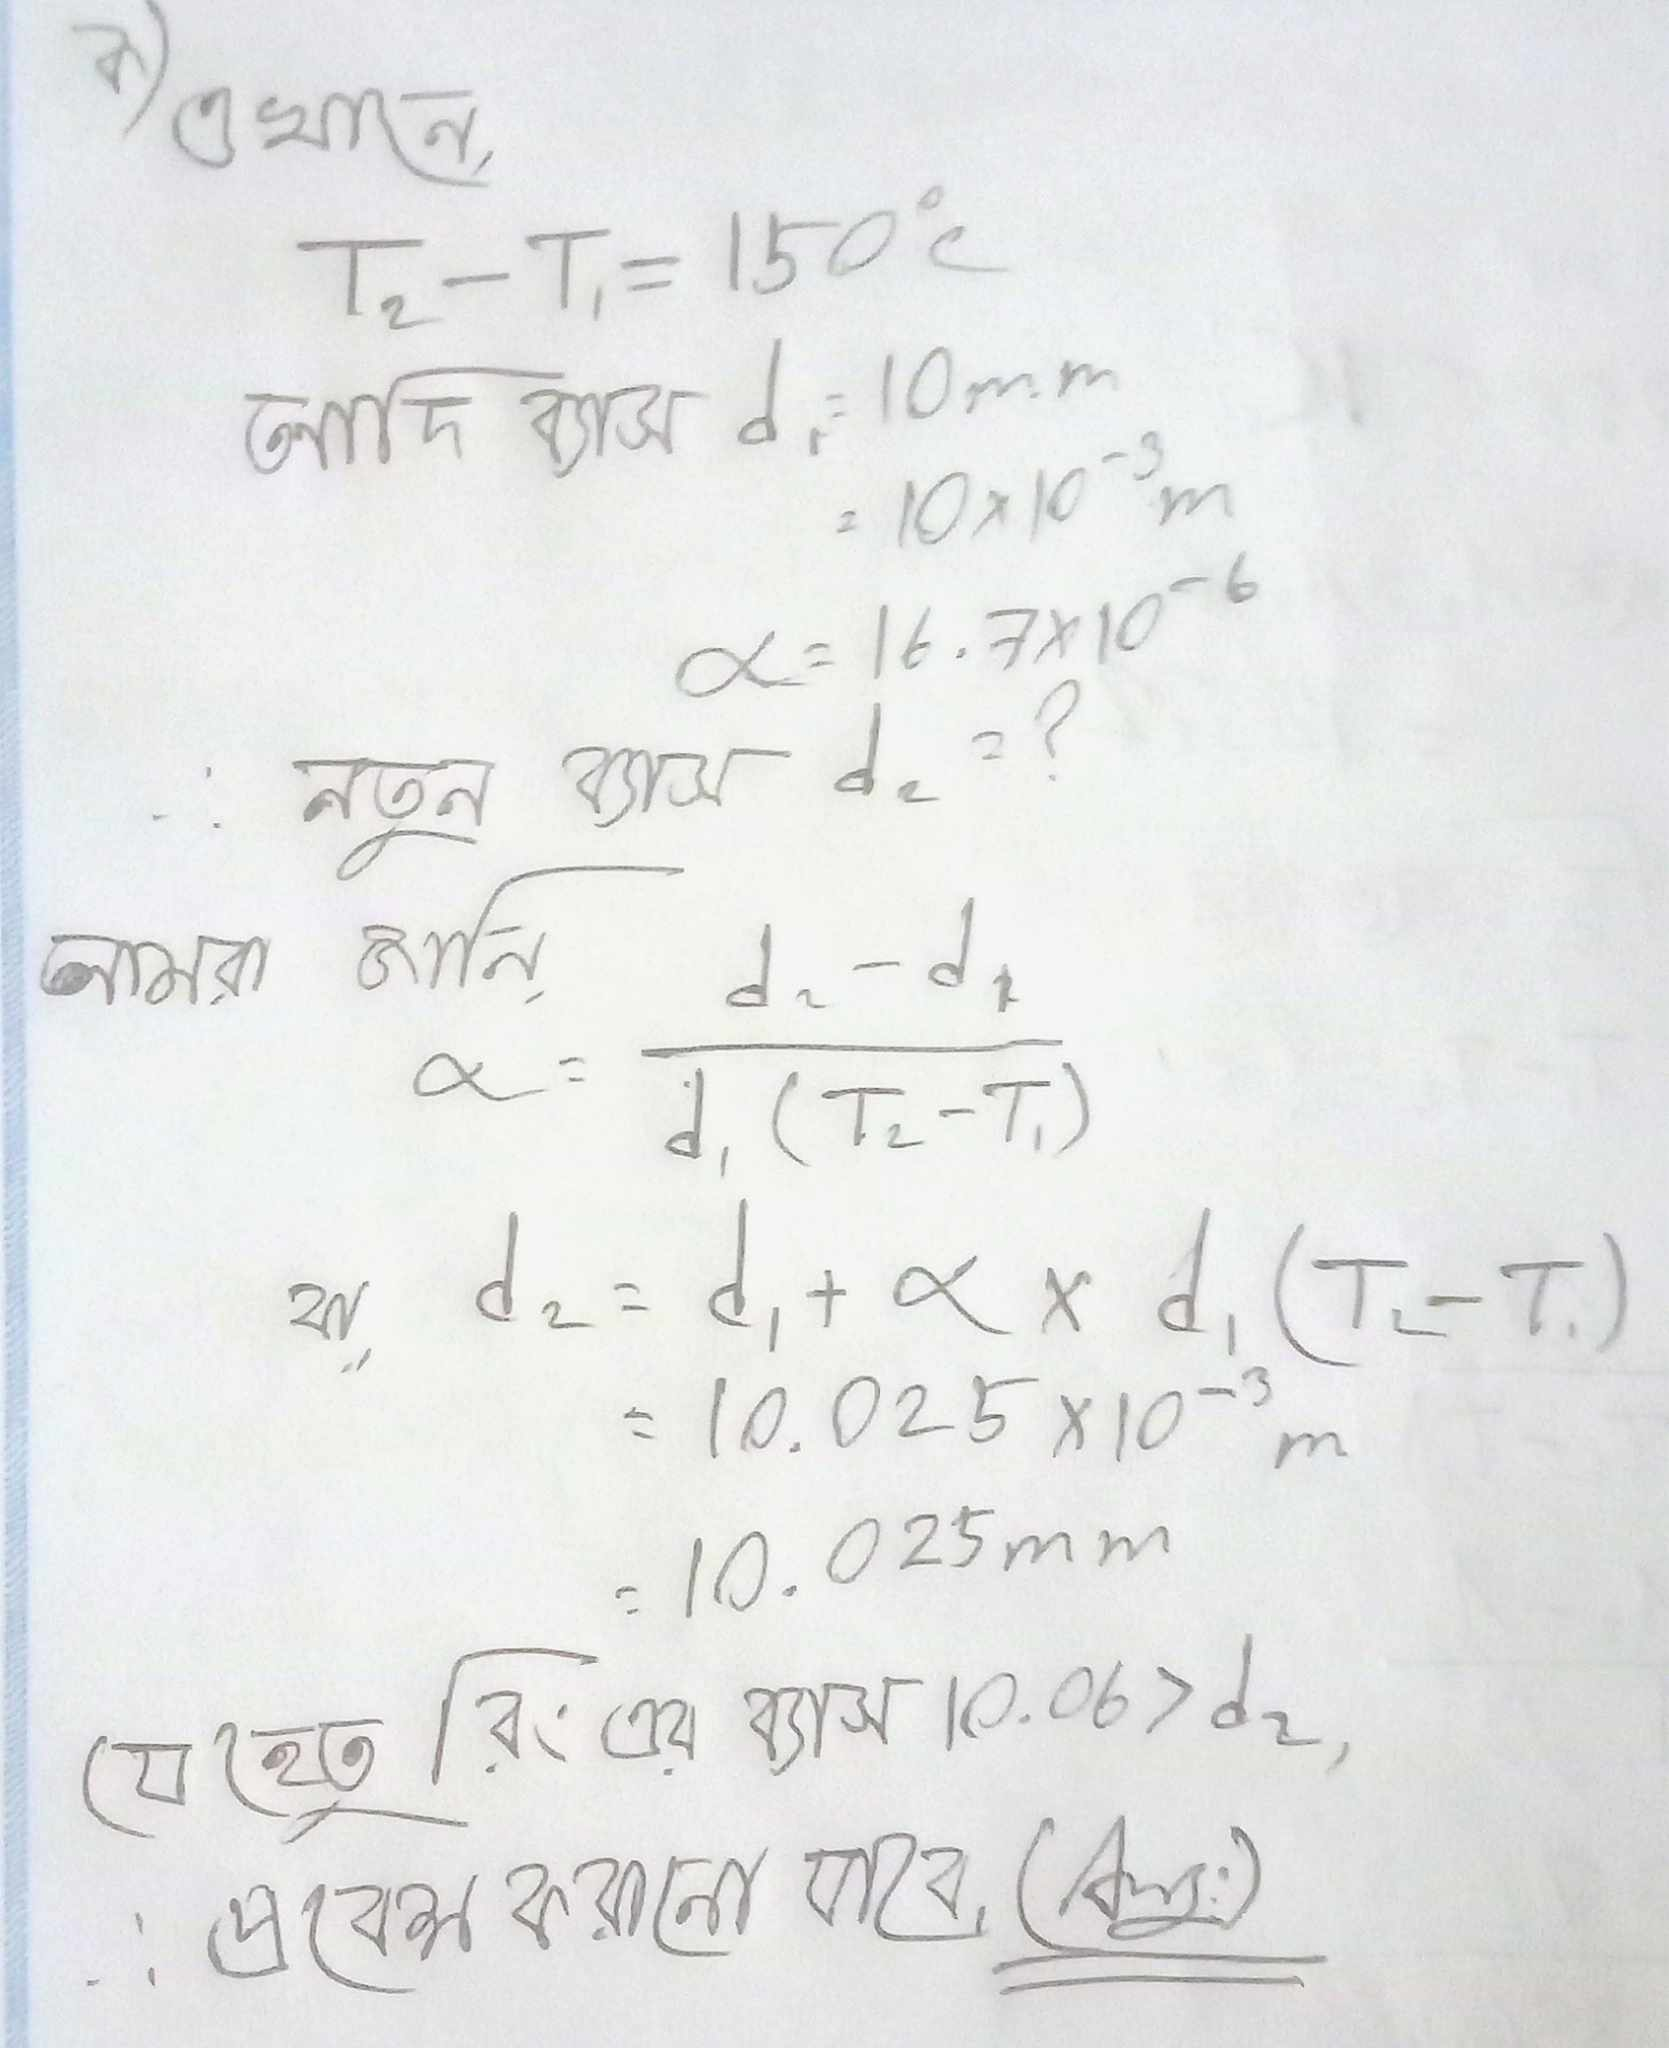 ক) এখানে,
T₂ - T₁ = 150°c
আদি ব্যাস d₁ = 10 m.m
= 10 x 10⁻³ m
α = 16.7 x 10⁻⁶
∴ নতুন ব্যাস d₂ = ?
আমরা জানি,
α = (d₂ - d₁) / d₁ (T₂ - T₁)
বা, d₂ = d₁ + α x d₁ (T₂ - T₁)
= 10.025 x 10⁻³ m
= 10.025 mm
যেহেতু রিং এর ব্যাস 10.06 > d₂,
∴ প্রবেশ করানো যাবে, (Ans:)